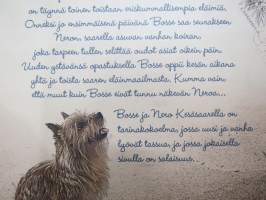 on täynnä toinen toistaan eriskummallisempia eläimiä.
Onneksi jo ensimmäisenä päivänä Bosse saa seurakseen
Neron, saarella asuvan vanhan koiran,
joka tarpeen tullen selittää oudot asiat oikein päin.
Uuden ystävänsä opastuksella Bosse oppii kesän aikana
yhtä ja toista saaren eläinmaailmasta. Kumma vain,
että muut kuin Bosse eivät tunnu näkevän Neroa...
Bosse ja Nero Kesäsaarella on
tarinakokoelma, jossa uusi ja vanha
lyövät tassua, ja jossa jokaisella
sivulla on salaisuus.